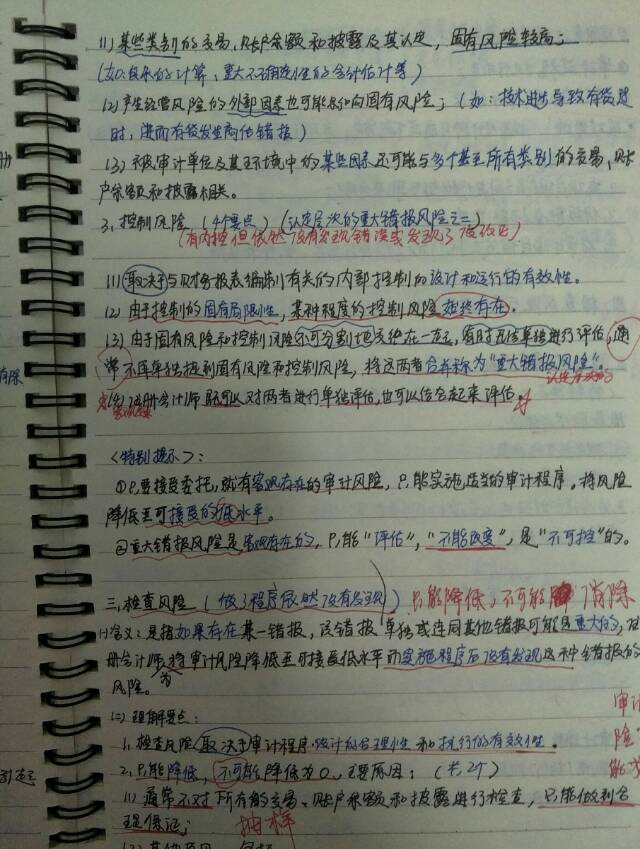 (1)某些类别的交易、账户余额和披露及其认定，固有风险较高；
(如：复杂的计算、重大不确定性的会计估计等)
(2)产生经营风险的外部因素也可能影响固有风险；(如：技术进步导致存货过
时，进而存货发生高估错报)
(3)被审计单位及其环境中的某些因素还可能与多个甚至所有类别的交易、账
户余额和披露相关。
3、控制风险（4个要点）(认定层次的重大错报风险之二)
(有内控但依然没有发现错误或发现了没改正)
(1)取决于与财务报表编制有关的内部控制的设计和运行的有效性。
(2)由于控制的固有局限性，某种程度的控制风险始终存在。
(3)由于固有风险和控制风险不可分割地交织在一起，有时无法单独进行评估，通
常不再单独提到固有风险和控制风险，将这两者合并称为“重大错报风险”。
认定层次的
(4)注册会计师既可以对两者进行单独评估，也可以结合起来评估。
<特别提示>：
①只要接受委托，就有客观存在的审计风险，只能实施适当的审计程序，将风险
降低至可接受的低水平。
②重大错报风险是客观存在的，只能“评估”，“不能改变”，是“不可控”的。
三、检查风险（做了程序依然没有发现）只能降低，不可能 消除
(一)含义：是指如果存在某一错报，该错报单独或连同其他错报可能是重大的，注
册会计师为将审计风险降低至可接受低水平而实施程序后没有发现这种错报的
风险。
(二)理解要点：
1、检查风险取决于审计程序设计的合理性和执行的有效性。
2、只能降低，不可能降低为0，主要原因：（共2个）
(1)通常不对所有的交易、账户余额和披露进行检查，只能做到合
理保证；抽样
(2)其他原因，包括